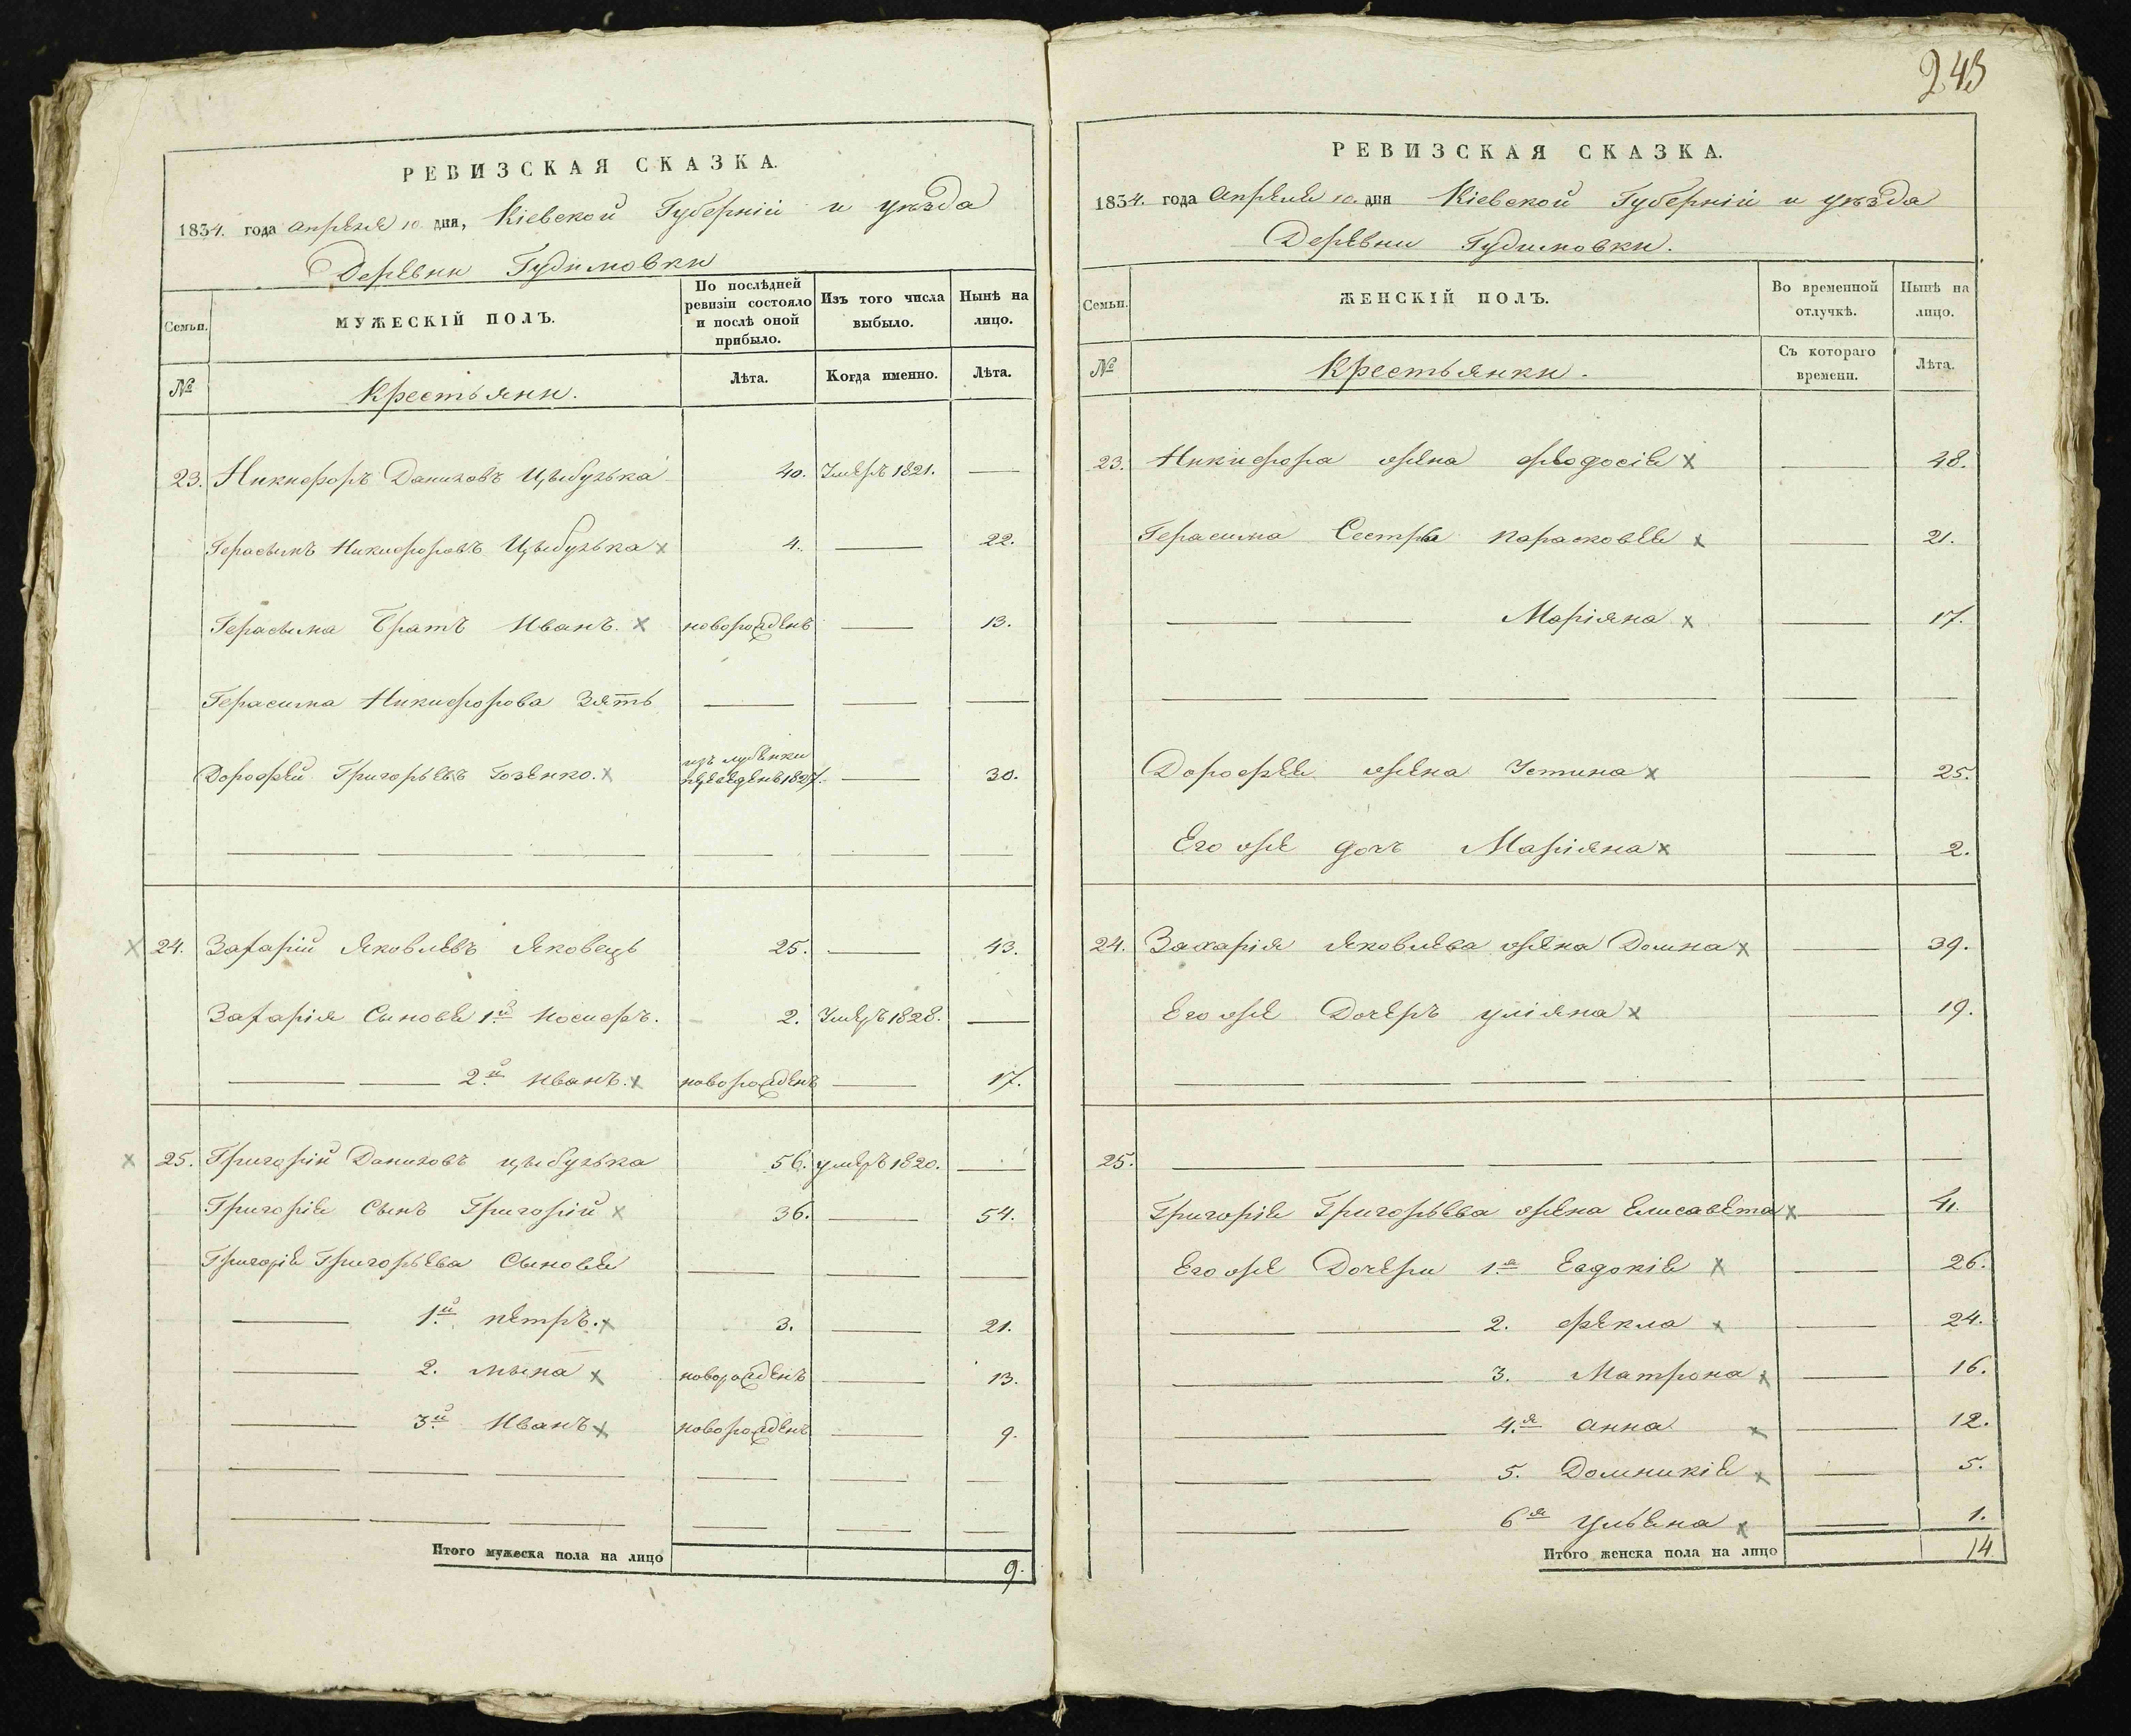 243
РЕВИЗСКАЯ СКАЗКА.
1834. года апреля 10 дня, Кіевской Губерніи и уезда
Деревни Гудимовки
Семьи.
МУЖЕСКІЙ ПОЛЪ.
По послѣдней ревизіи состояло и послѣ оной прибыло.
Изъ того числа выбыло.
Нынѣ на лицо.
№
Крестьяни.
Лѣта.
Когда именно.
Лѣта.
23. Никифоръ Даниловъ Цыбулька 40. Умеръ 1821. —
Герасимъ Никифоровъ Цыбулька x 4. — 22.
Герасима Братъ Иванъ. x новорожденъ — 13.
Герасима Никифорова Зять — — —
Дорофей Григорьевъ Гозенко. x изъ переведенъ 1827. — 30.
x 24. Захарій Яковлевъ Яковецъ 25. — 43.
Захарія Сыновья 1й Иосифъ. 2. Умеръ 1828. —
2й Иванъ. x новорожденъ — 17.
x 25. Григорій Даниловъ цыбулька 56. умеръ 1820. —
Григорія Сынъ Григорій x 36. — 54.
Григорія Григорьева Сыновья — — —
1й петръ. x 3. — 21.
2. мына x новорожденъ — 13.
3й Иванъ x новорожденъ — 9.
Итого мужеска пола на лицо 9.
РЕВИЗСКАЯ СКАЗКА.
1834. года апреля 10 дня Кіевской Губерніи и уезда
Деревни Гудимовки.
Семьи.
ЖЕНСКІЙ ПОЛЪ.
Во временной отлучкѣ.
Нынѣ на лицо.
№
Крестьянки.
Съ котораго времени.
Лѣта.
23. Никифора жена феодосія x — 48.
Герасима Сестры Парасковея x — 21.
Маріяна x — 17.
Дорофея жена Устина x — 25.
Его же дочъ Маріяна x — 2.
24. Захарія Яковлева жена Домна x — 39.
Его же Дочеръ уліяна x — 19.
25.
Григорія Григорьева жена Елисавета x — 41.
Его же Дочери 1я Евдокія x — 26.
2. фекла x — 24.
3. Матрона x — 16.
4я анна x — 12.
5. Домникія x — 5.
6я Ульяна x — 1.
Итого женска пола на лицо 14